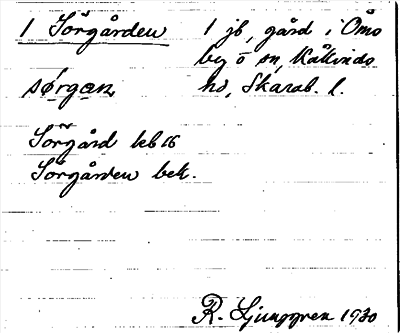 1 Sörgården 1 jb, gård i Omo
by o sn, Kållinds
sørgan, hd, Skarab. l.
Sörgård lcb 16
Sörgården bek.
R. Ljunggren 1930